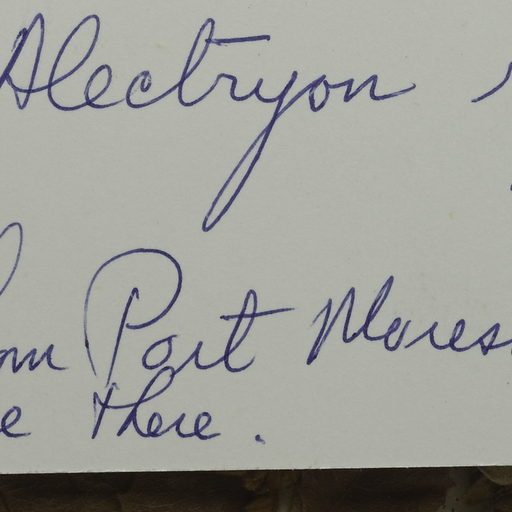 Alectryon
om Port Mores
e there.